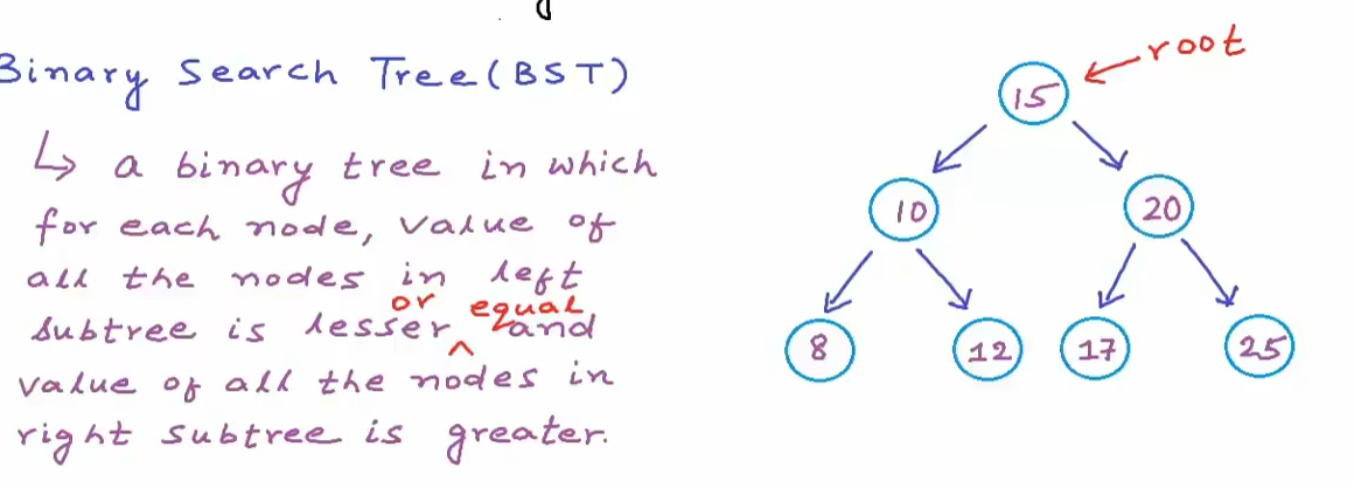 Binary Search Tree (BST)
↳ a binary tree in which
for each node, value of
all the nodes in left
subtree is lesser or equal and
value of all the nodes in
right subtree is greater.
root
15
10 20
8 12 17 25